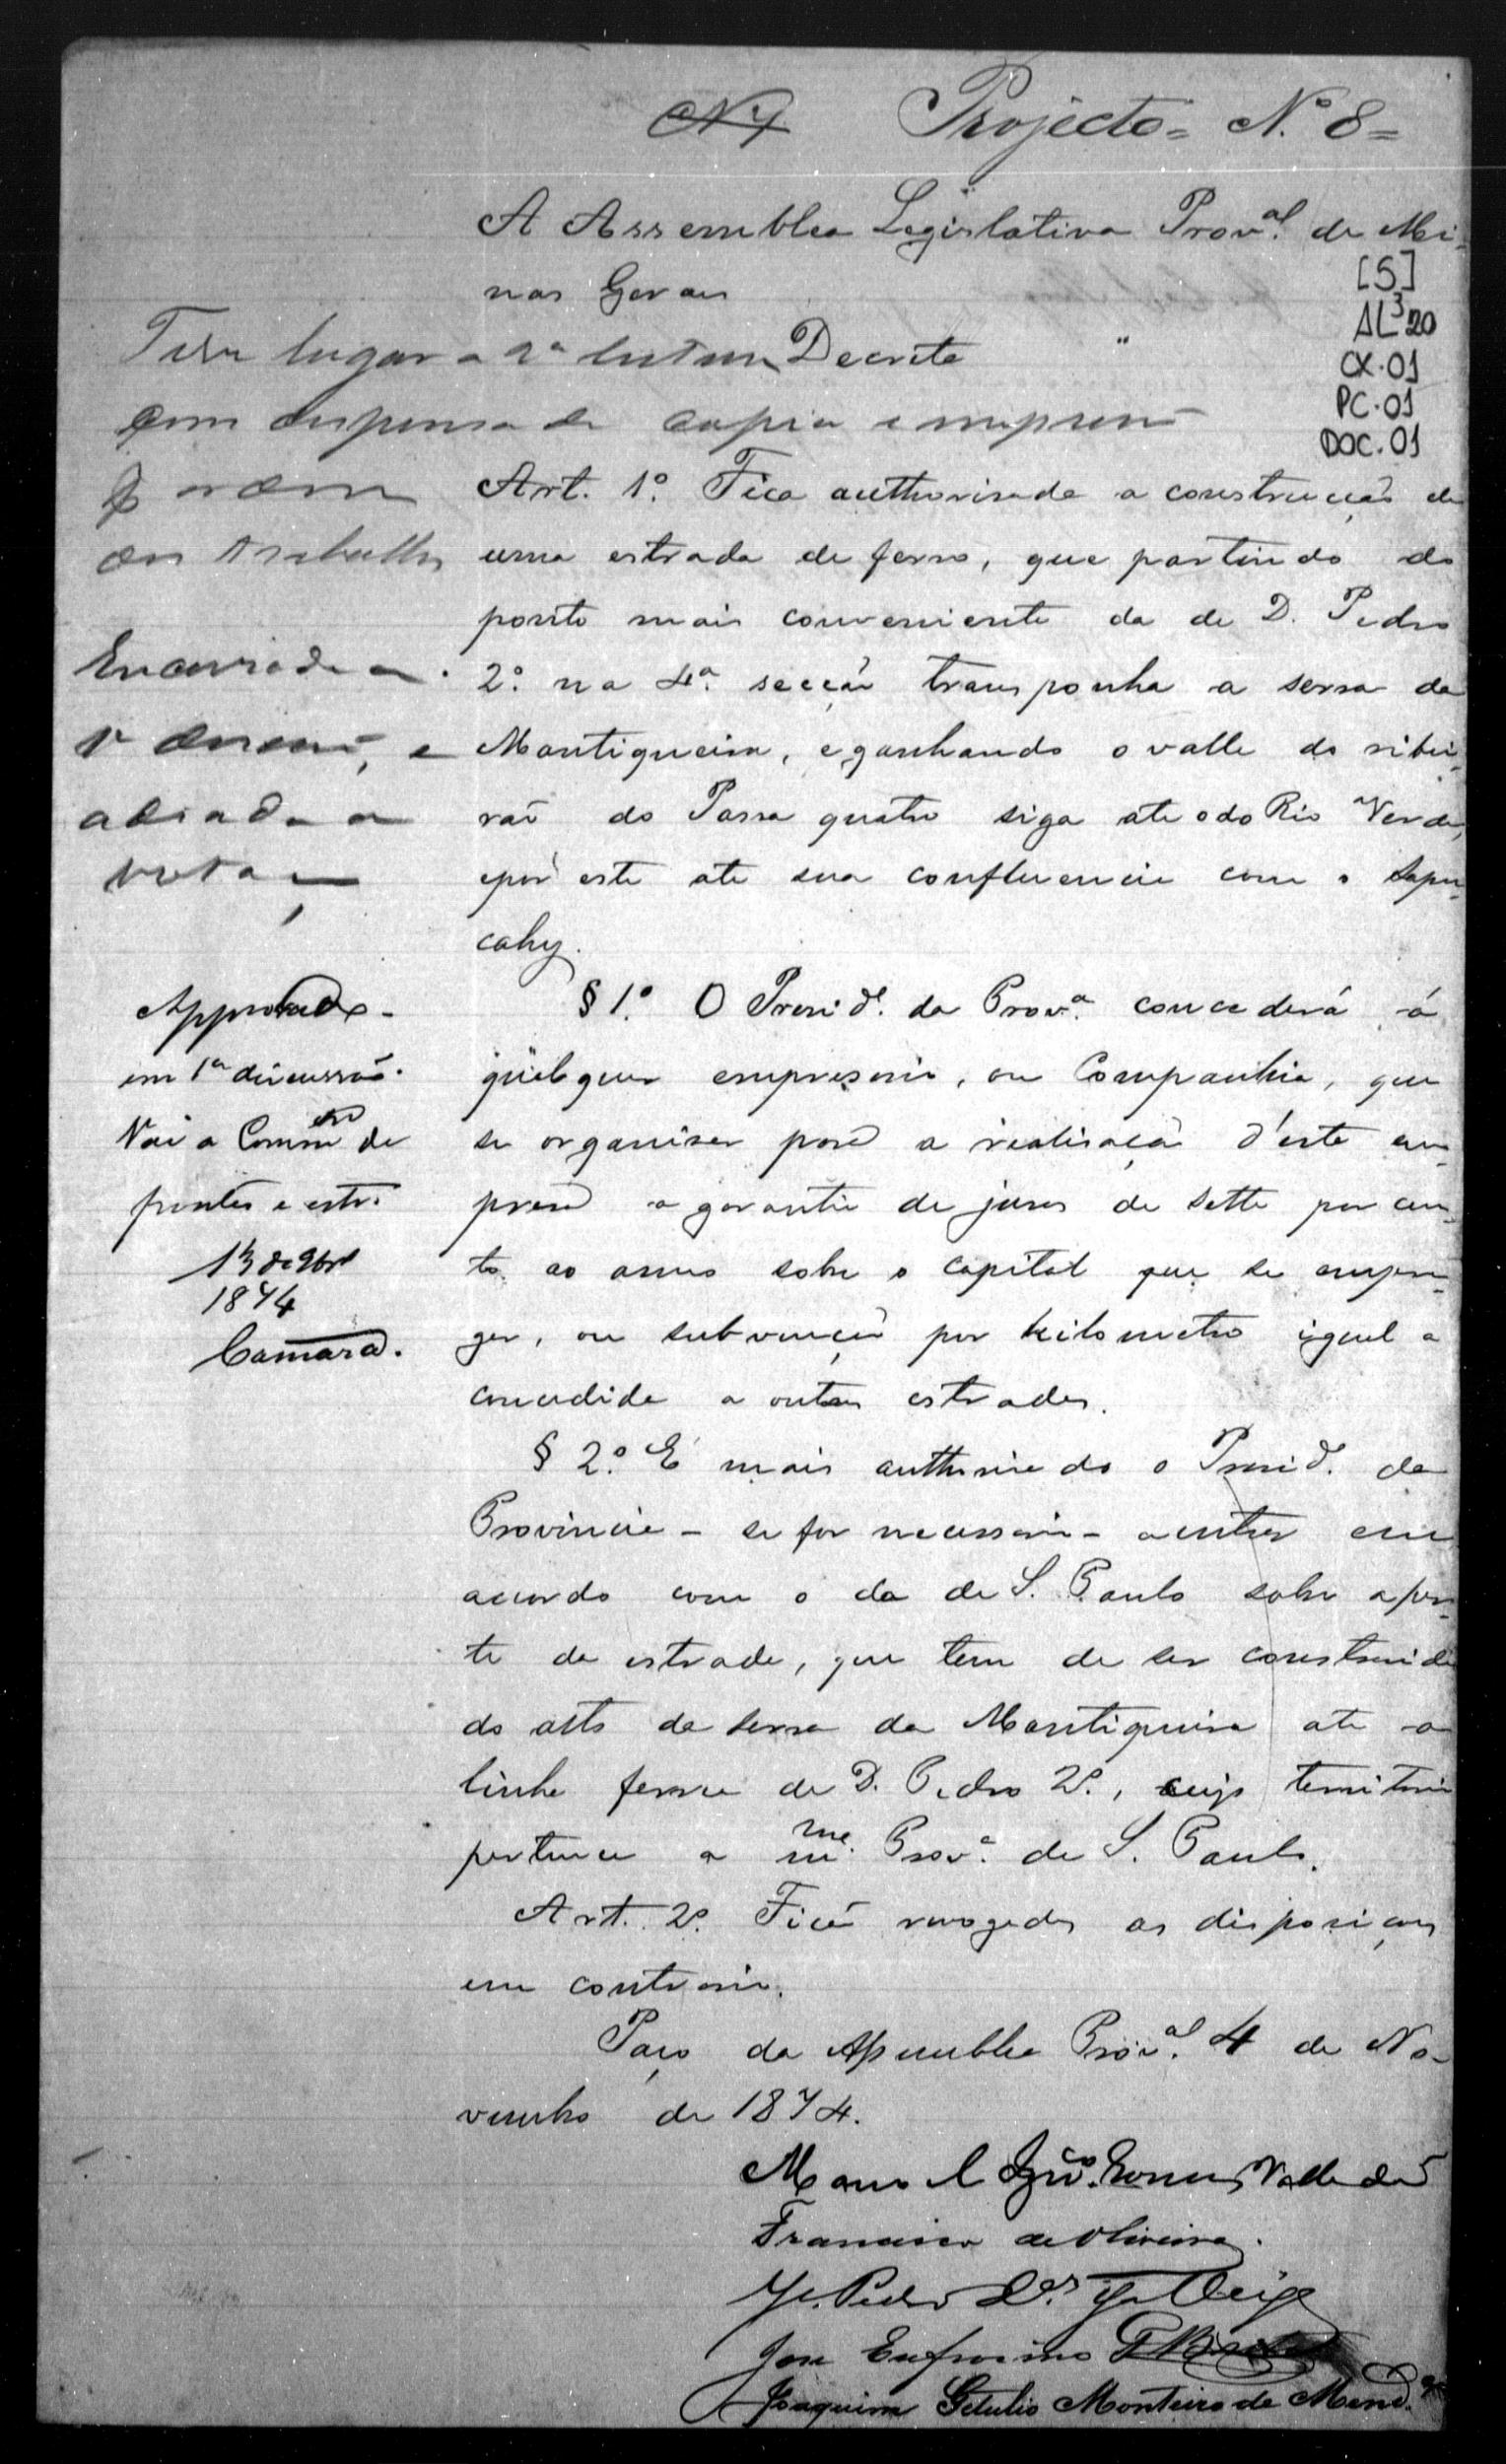 Nº 7 Projecto = N.º 8 =
A Assemblea Legislativa Prov.al de Mi-
nas Geraes
[5]
AL³20
CX.01
PC.01
DOC.01
Decreta
Teve lugar a 1ª leitura
com dispensa de copia e impressão
ordem
dos trabalhos
Art. 1º. Fica authorisada a construcção de
uma estrada de ferro, que partindo do
ponto mais conveniente da de D. Pedro
2º. na 4ª. secção transponha a serra da
Mantiqueira, e ganhando o valle do ribei-
rão do Passa quatro siga ate o do Rio Verde,
e por este ate sua confluencia com o Sapu-
cahy.
Encerrada a
1ª discussão, e
adiada a
votação
§ 1º. O Presid.e da Prov.a concederá á
qualquer empresario, ou Companhia, que
se organisar para a realisação d'esta em-
presa a garantia de juros de sette por cen-
to ao anno sobre o capital que se empre-
gar, ou subvenção por kilometro igual a
concedida a outras estradas.
Approvado
em 1ª discussão.
Vai a Commão de
pontes e estr.
13 de 9br.o
1874
Camara.
§ 2º. É mais authorisado o Presid.e da
Provincia - se for necessario - a entrar em
accordo com o da de S. Paulo sobre a par-
te da estrada, que tem de ser construida
do alto da serra da Mantiqueira ate a
linha ferrea de D. Pedro 2º., cujo territorio
pertence a m.ma Prov.a de S. Paulo.
Art. 2º. Ficão revogadas as disposições
em contrario.
Paço da Assemblea Prov.al 4 de No-
vembro de 1874.
Manoel Ign.co Gomes Valladão
Francisco de Oliveira.
Pedro da Veiga
José Eufrosino
Joaquim Getulio Monteiro de Mend.ça